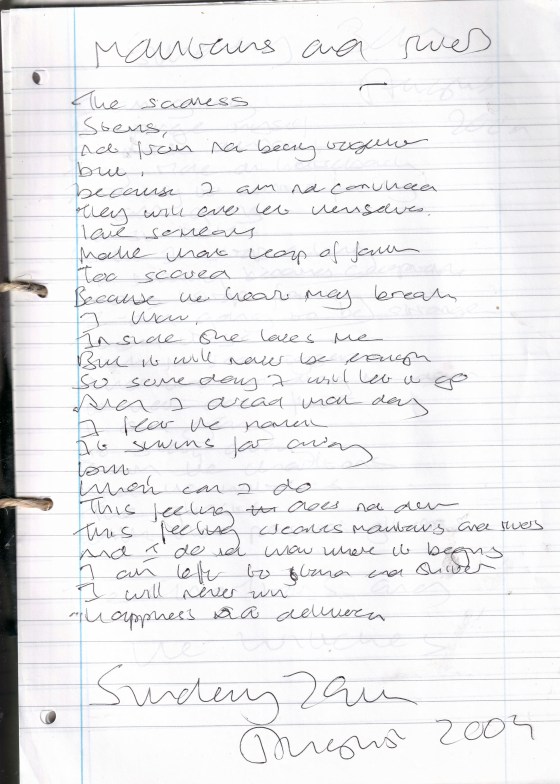 Mountains and rivers
The sadness
Stems,
not from not being together
but,
because I am not convinced
they will ever let themselves
love someone
Make that leap of faith
Too scared
Because the heart may break
I know
Inside she loves me
But it will never be enough
So some day I will let it go
And I dread that day
I fear the moment
It seems far away
but
What can I do
This feeling does not dim
This feeling creates mountains and rivers
And I do not know where it begins
I am left to stand and shiver
I will never win
Happiness delivered
Sunday
August 2004